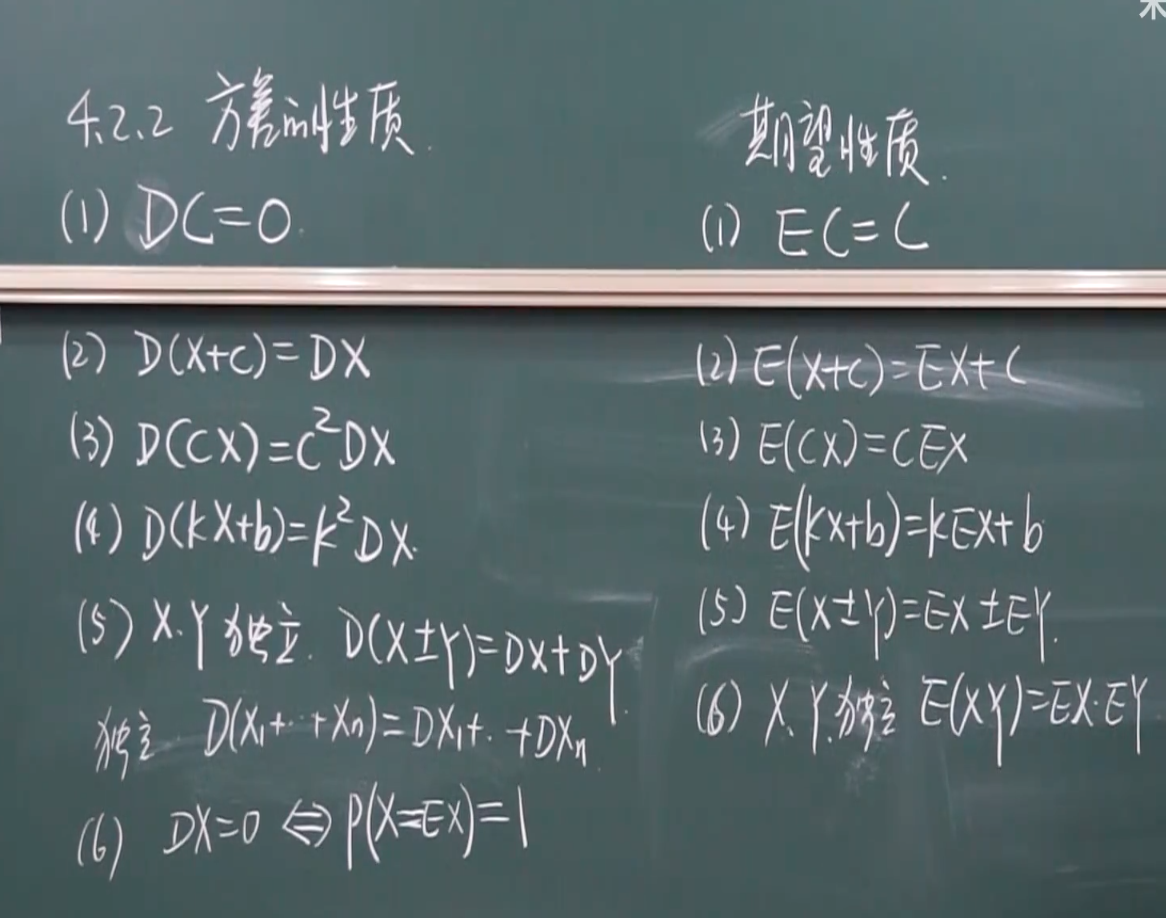 4.2.2 方差的性质.
(1) DC=0.
(2) D(X+C)=DX
(3) D(CX)=C²DX
(4) D(kX+b)=k²DX.
(5) X.Y独立. D(X±Y)=DX+DY.
独立 D(X₁+…+Xₙ)=DX₁+..+DXₙ.
(6) DX=0 ⇔ P(X=EX)=1
期望性质.
(1) EC=C
(2) E(X+C)=EX+C
(3) E(CX)=CEX
(4) E(kX+b)=kEX+b
(5) E(X±Y)=EX±EY.
(6) X.Y.独立 E(XY)=EX·EY